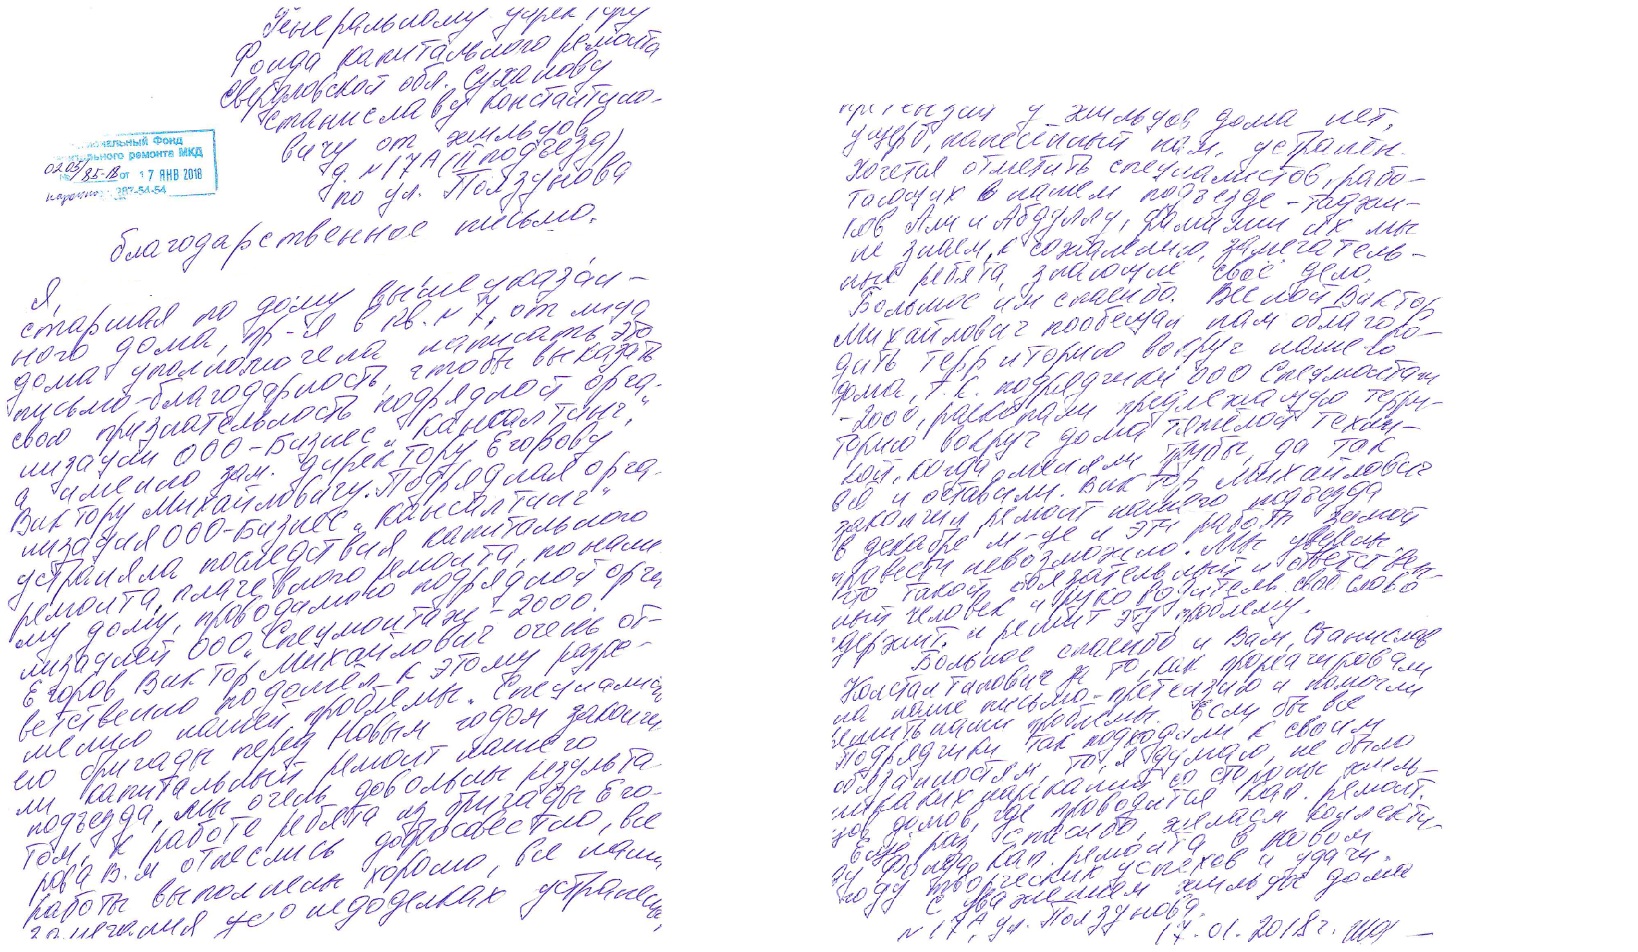 Генеральному директору
Фонда капитального ремонта
Свердловской обл. Суханову
Станиславу Константино-
вичу от жильцов
д. №17А (III подъезд)
по ул. Ползунова
Фонд
капитального ремонта МКД
02.05/85-18 от 17 ЯНВ 2018
287-54-54
благодарственное письмо.
Я,
старшая по дому вышеуказан-
ного дома, пр-я в кв. №7, от лица
дома уполномочена написать это
письмо-благодарность, чтобы высказать
свою признательность подрядной орга-
низации ООО-Бизнес „Кансалтинг",
а именно зам. директору Егорову
Виктору Михайловичу. Подрядная орга-
низация ООО-Бизнес „Кансалтинг"
устраняла последствия капитального
ремонта, плачевного ремонта, по наше
му дому, проводимого подрядной орга
низацией ООО „Спецмонтаж-2000".
Егоров Виктор Михайлович очень от-
ветственно подошел к этому разре-
шению нашей проблемы. Специалисты
его бригады перед Новым годом закончи
ли капитальный ремонт нашего
подъезда, мы очень довольны результа-
том, к работе ребята из бригады Его-
рова В.М отнеслись добросовестно, все
работы выполнены хорошо, все наши
замечания о недоделках устранены,
претензий у жильцов дома нет,
ущерб, нанесённый нам, устранён.
Хочется отметить специалистов, рабо-
тающих в нашем подъезде - таджи-
ков Али и Абдуллу, фамилии их мы
не знаем, к сожалению, замечатель-
ные ребята, знающие своё дело.
Большое им спасибо. Весной Виктор
Михайлович пообещал нам облагоро-
дить территорию вокруг нашего
дома, т.к. подрядчики ООО Спецмонтаж
-2000, раскопали прилежащую терри-
торию вокруг дома тяжёлой техни-
кой, когда меняли трубы, да так
всё и оставили. Виктор Михайлович
закончил ремонт нашего подъезда
в декабре м-це и эти работы зимой
провести невозможно. Мы уверены
что такой обязательный и ответствен-
ный человек и руководитель своё слово
держит и решит эту проблему.
Большое спасибо и Вам, Станислав
Константинович за то, как прореагировали
на наше письмо-претензию и помогли
решить наши проблемы. Если бы все
подрядчики так подходили к своим
обязанностям, то, я думаю, не было
никаких нареканий со стороны жиль-
цов домов, где проводится кап. ремонт.
Ещё раз спасибо, желаем коллекти-
ву Фонда кап. ремонта в Новом
году творческих успехов и удачи.
С уважением жильцы дома
№17А, ул. Ползунова.
17.01.2018г.